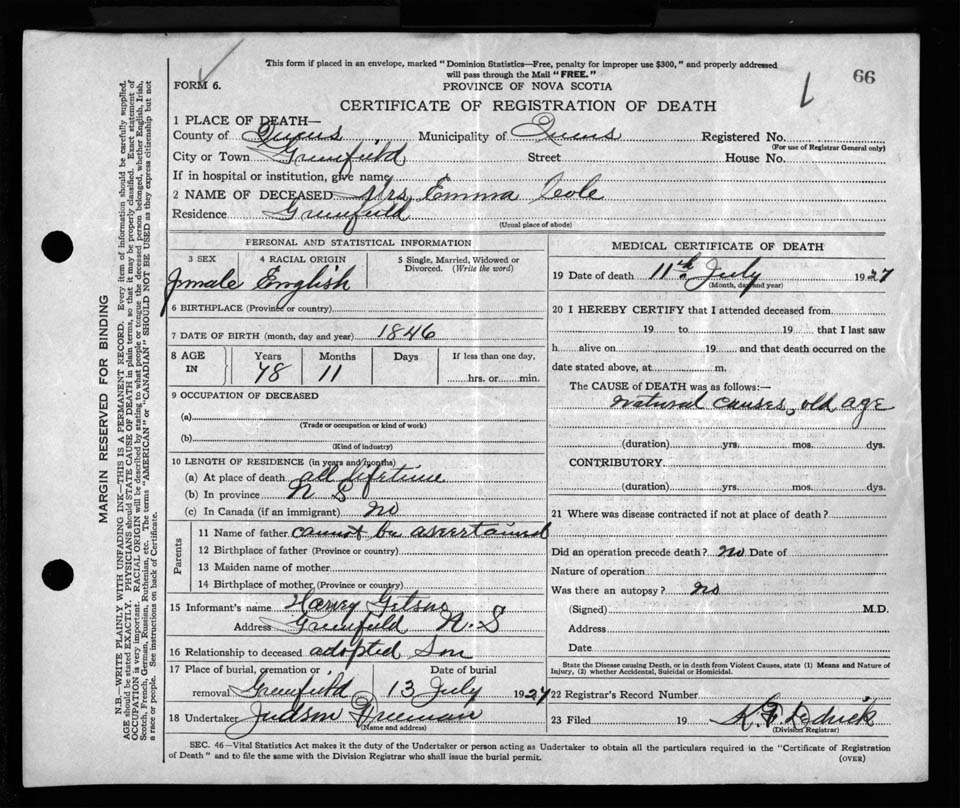 This form if placed in an envelope, marked "Dominion Statistics—Free, penalty for improper use $300," and properly addressed
will pass through the Mail "FREE."
66
FORM 6.
PROVINCE OF NOVA SCOTIA
CERTIFICATE OF REGISTRATION OF DEATH
1 PLACE OF DEATH—
County of Queens Municipality of Queens Registered No.
(For use of Registrar General only)
City or Town Greenfield Street House No.
If in hospital or institution, give name
2 NAME OF DECEASED Mrs Emma Cole
Residence Greenfield
(Usual place of abode)
PERSONAL AND STATISTICAL INFORMATION
3 SEX 4 RACIAL ORIGIN 5 Single, Married, Widowed or
Divorced. (Write the word)
Female English
6 BIRTHPLACE (Province or country)
7 DATE OF BIRTH (month, day and year) 1846
8 AGE IN Years Months Days If less than one day,
78 11 hrs. or min.
9 OCCUPATION OF DECEASED
(a)
(Trade or occupation or kind of work)
(b)
(Kind of industry)
10 LENGTH OF RESIDENCE (in years and months)
(a) At place of death all lifetime
(b) In province N S
(c) In Canada (if an immigrant) no
Parents
11 Name of father cannot be ascertained
12 Birthplace of father (Province or country)
13 Maiden name of mother
14 Birthplace of mother (Province or country)
15 Informant's name Harvey
Address Greenfield N.S
16 Relationship to deceased adopted Son
17 Place of burial, cremation or Date of burial
removal Greenfield 13 July 1927
18 Undertaker Judson Freeman
(Name and address)
MEDICAL CERTIFICATE OF DEATH
19 Date of death 11th July 1927
(Month, day and year)
20 I HEREBY CERTIFY that I attended deceased from
19 to 19 that I last saw
h alive on 19 and that death occurred on the
date stated above, at m.
The CAUSE of DEATH was as follows:—
natural causes, old age
(duration) yrs. mos. dys.
CONTRIBUTORY
(duration) yrs. mos. dys.
21 Where was disease contracted if not at place of death?
Did an operation precede death? no Date of
Nature of operation
Was there an autopsy? no
(Signed) M.D.
Address
Date
State the Disease causing Death, or in death from Violent Causes, state (1) Means and Nature of
Injury, (2) whether Accidental, Suicidal or Homicidal.
22 Registrar's Record Number
23 Filed 19
(Division Registrar)
SEC. 46—Vital Statistics Act makes it the duty of the Undertaker or person acting as Undertaker to obtain all the particulars required in the "Certificate of Registration
of Death" and to file the same with the Division Registrar who shall issue the burial permit.
(OVER)
MARGIN RESERVED FOR BINDING
N.B.—WRITE PLAINLY WITH UNFADING INK—THIS IS A PERMANENT RECORD. Every item of information should be carefully supplied.
AGE should be stated EXACTLY. PHYSICIANS should STATE CAUSE OF DEATH in plain terms, so that it may be properly classified. Exact statement of
OCCUPATION is very important. RACIAL ORIGIN will be described by stating to what people or tongue the deceased person belonged, whether English, Irish,
Scotch, French, German, Russian, Ruthenian, etc. The terms "AMERICAN" or "CANADIAN" SHOULD NOT BE USED as they express citizenship but not
a race or people. See instructions on back of Certificate.